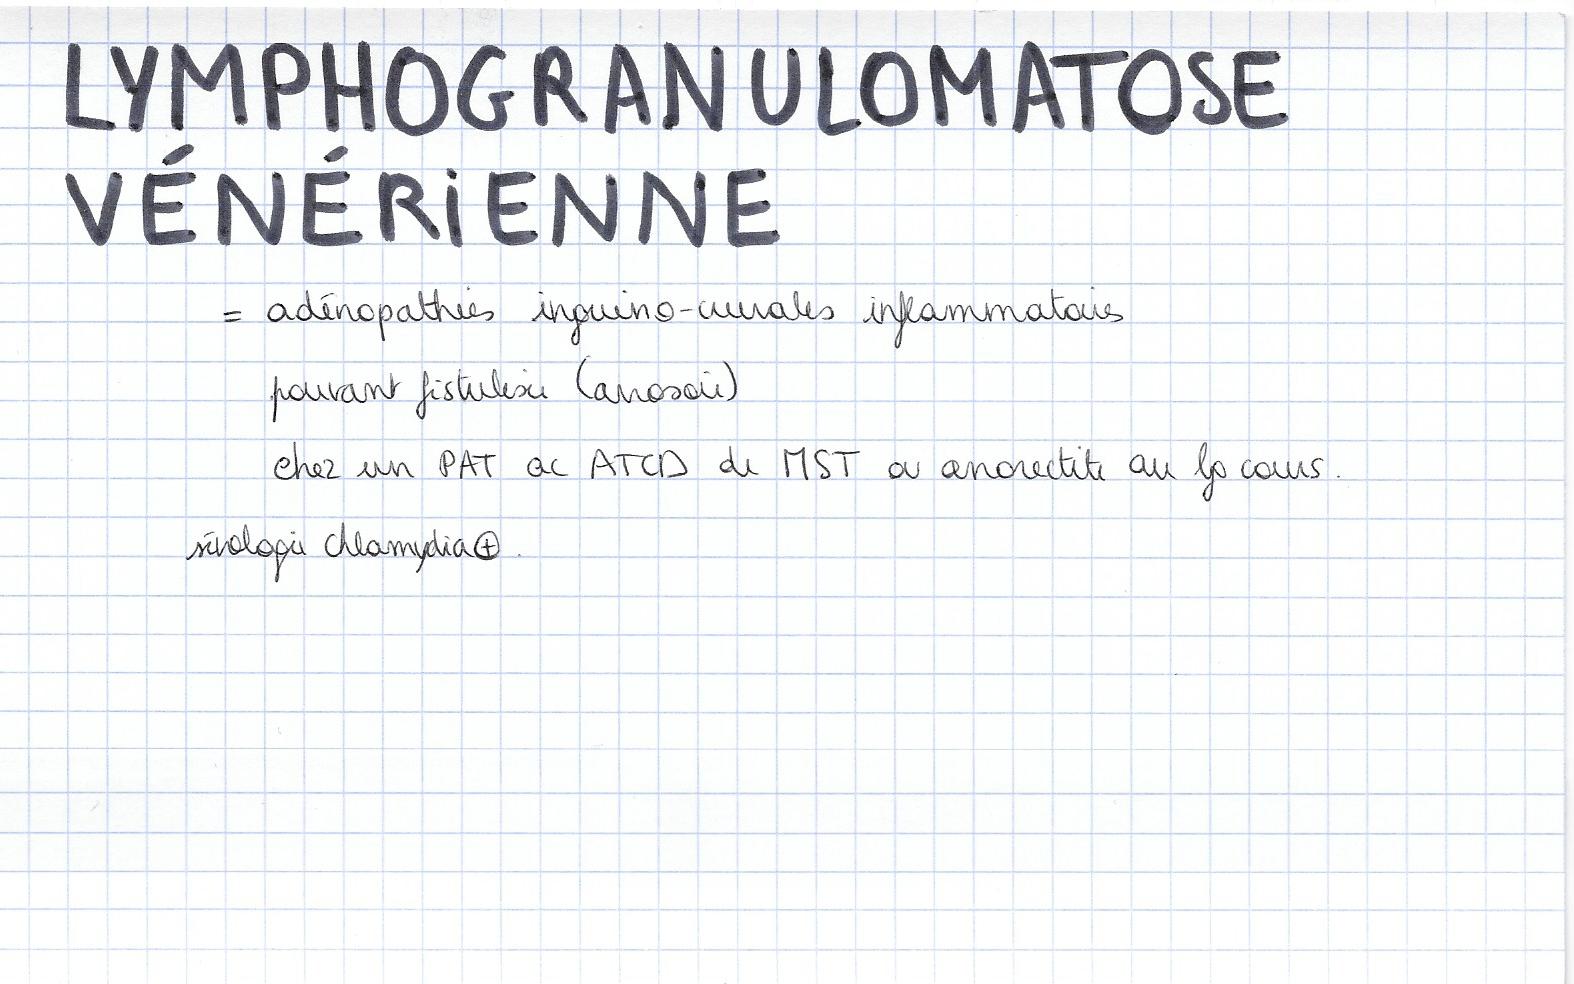 LYMPHOGRANULOMATOSE
VÉNÉRIENNE
= adénopathies inguino-crurales inflammatoires
pouvant fistuliser (arrosoir)
chez un PAT ac ATCD de MST ou anorectite au lg cours.
sérologie chlamydia ⊕.